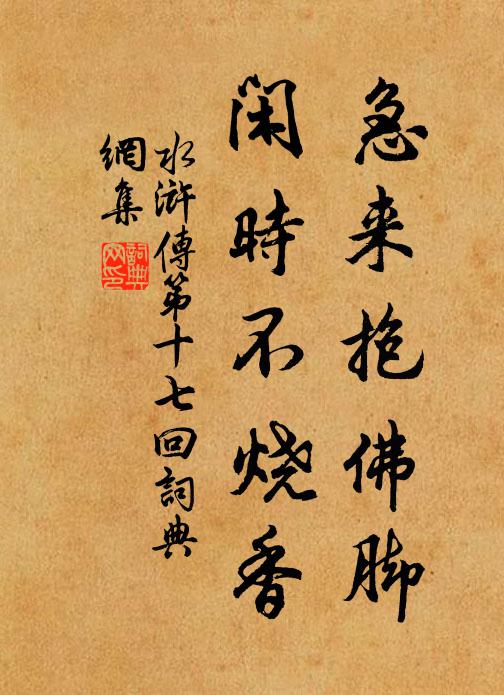 急来抱佛脚
闲時不烧香
水滸傳第十七回詞典
網集
詞典
网印